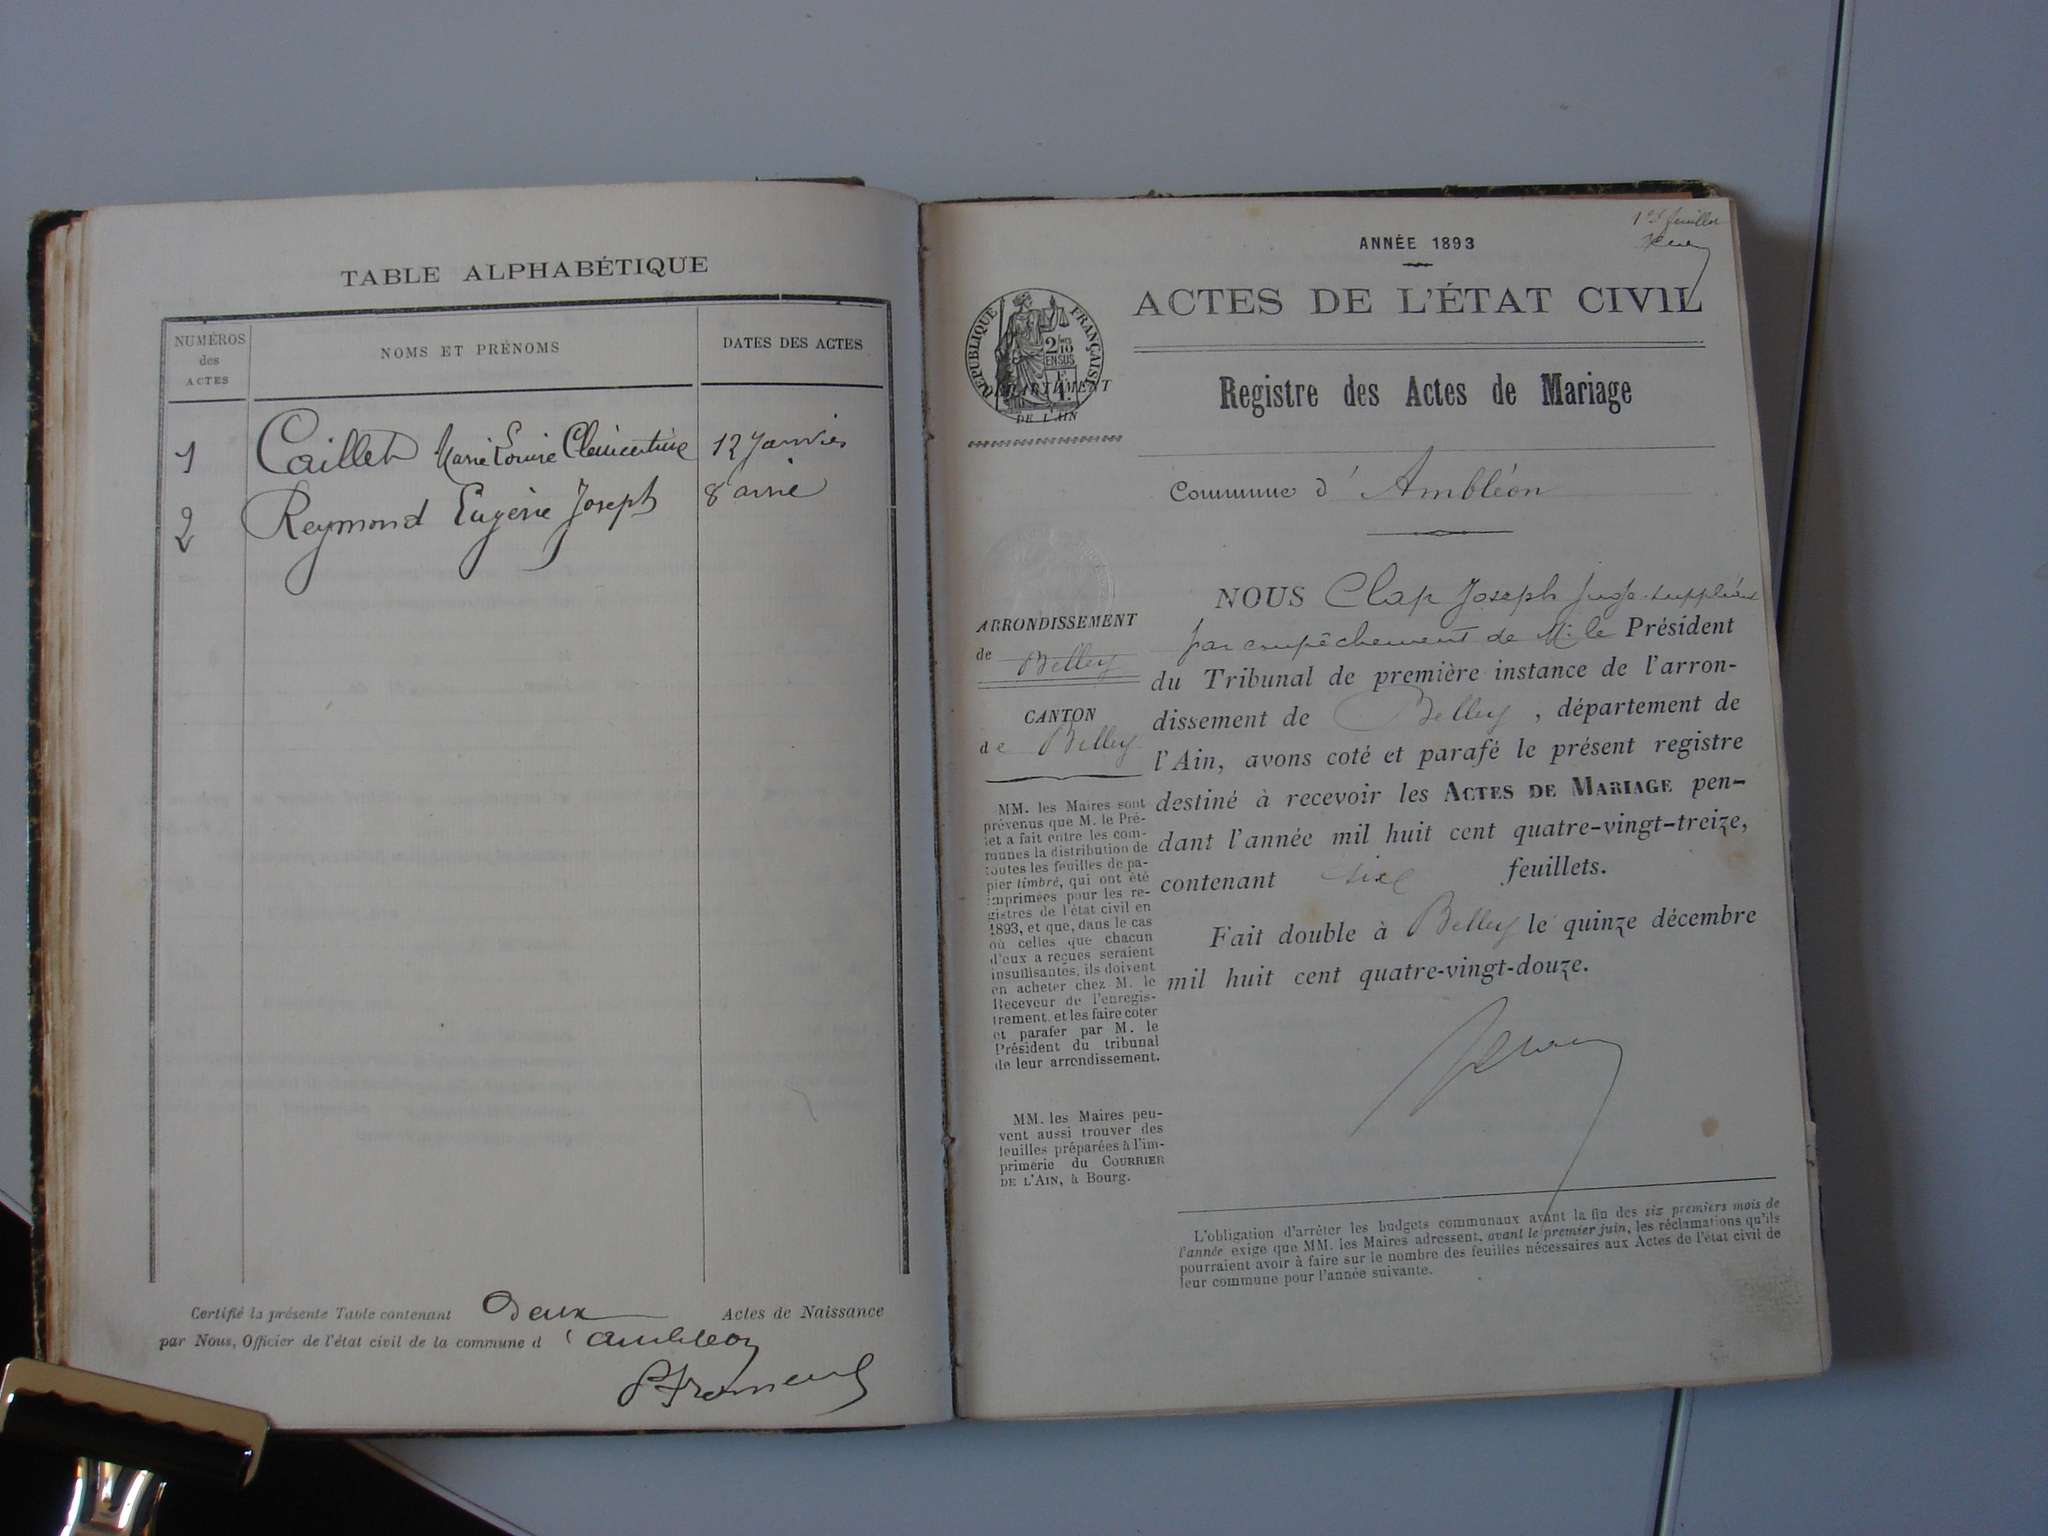 TABLE ALPHABÉTIQUE
NUMÉROS des ACTES
NOMS ET PRÉNOMS
DATES DES ACTES
1 Caillet Marie Louise Clémentine 12 Janvier
2 Reymond Eugénie Joseph 8
Certifié la présente Table contenant Deux Actes de Naissance
par Nous, Officier de l'état civil de la commune d'ambléon
1er feuillet
ANNÉE 1893
ACTES DE L'ÉTAT CIVIL
RÉPUBLIQUE FRANÇAISE
2/10 EN SUS
DÉPARTEMENT
DE L'AIN
Registre des Actes de Mariage
Commune d'Ambléon
ARRONDISSEMENT
de Belley
CANTON
de Belley
MM. les Maires sont
prévenus que M. le Pré-
fet a fait entre les com-
munes la distribution de
toutes les feuilles de pa-
pier timbré, qui ont été
imprimées pour les re-
gistres de l'état civil en
1893, et que, dans le cas
où celles que chacun
d'eux a reçues seraient
insuffisantes, ils doivent
en acheter chez M. le
Receveur de l'enregis-
trement, et les faire coter
et parafer par M. le
Président du tribunal
de leur arrondissement.
MM. les Maires peu-
vent aussi trouver des
feuilles préparées à l'im-
primerie du COURRIER
DE L'AIN, à Bourg.
NOUS Clap Joseph Juge suppléant
par empêchement de Mr le Président
du Tribunal de première instance de l'arron-
dissement de Belley, département de
l'Ain, avons coté et parafé le présent registre
destiné à recevoir les ACTES DE MARIAGE pen-
dant l'année mil huit cent quatre-vingt-treize,
contenant six feuillets.
Fait double à Belley le quinze décembre
mil huit cent quatre-vingt-douze.
L'obligation d'arrêter les budgets communaux avant la fin des six premiers mois de
l'année exige que MM. les Maires adressent, avant le premier juin, les réclamations qu'ils
pourraient avoir à faire sur le nombre des feuilles nécessaires aux Actes de l'état civil de
leur commune pour l'année suivante.